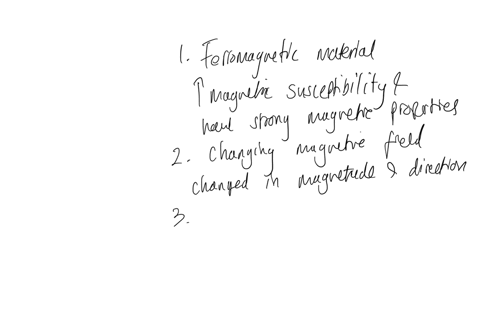 1. Ferromagnetic material
↑ magnetic susceptibility &
have strong magnetic properties
2. Changing magnetic field
changed in magnetude & direction
3.